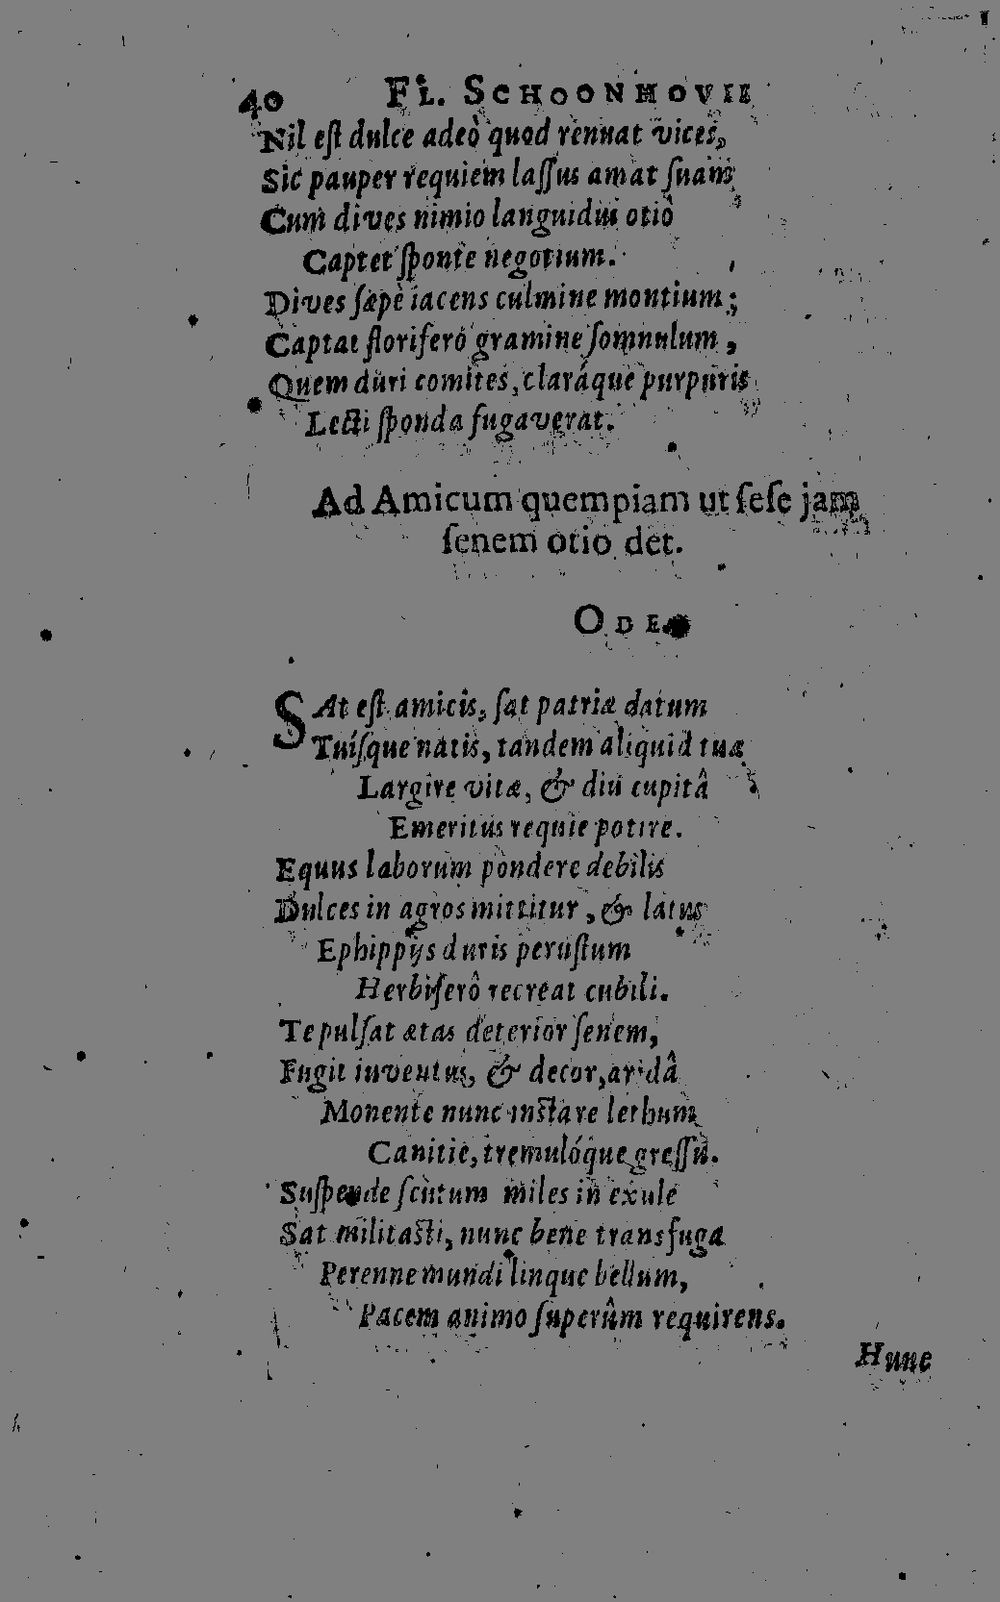 40 FL. SCHOONHOVII
Nil eſt dulce adeò quod rennat vices,
Sic pauper requiem laſſus amat ſuam
Cum dives nimio languidus otiô
Captet ſponte negotium.
Dives ſæpè iacens culmine montium;
Captat floriferô gramine ſomnulum,
Quem duri comites, claráque purpuris
Lecti ſponda fugaverat.
Ad Amicum quempiam ut ſeſe jam
ſenem otio det.
ODE.
SAt eſt amicis, ſat patriæ datum
Tuíſque natis, tandem aliquid tuæ
Largire vitæ, & diu cupitâ
Emeritus requie potire.
Equus laborum pondere debilis
Dulces in agros mittitur, & latus
Ephippijs duris peruſtum
Herbiferô recreat cubili.
Te pulſat ætas deterior ſenem,
Fugit iuventus, & decor, aridâ
Monente nunc inſtare lethum
Canitie, tremulóque greſſu.
Suſpende ſcutum miles in exule
Sat militaſti, nunc bene transfuga
Perenne mundi linque bellum,
Pacem animo ſuperûm requirens.
Hunc